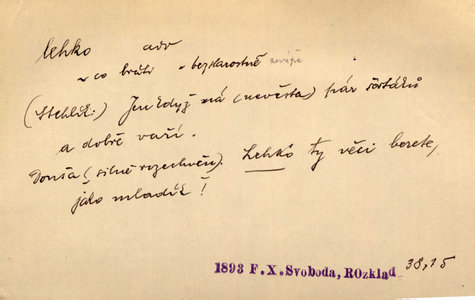 lehko adv
~ co bráti = bezstarostně nevážně
(Stehlík:) Jen když má (nevěsta) pár šestáků
a dobře vaří.
Douša (silně rozechvěn). Lehkó ty věci berete,
jako mladík!
1893 F.X.Svoboda, ROzklad 38,15